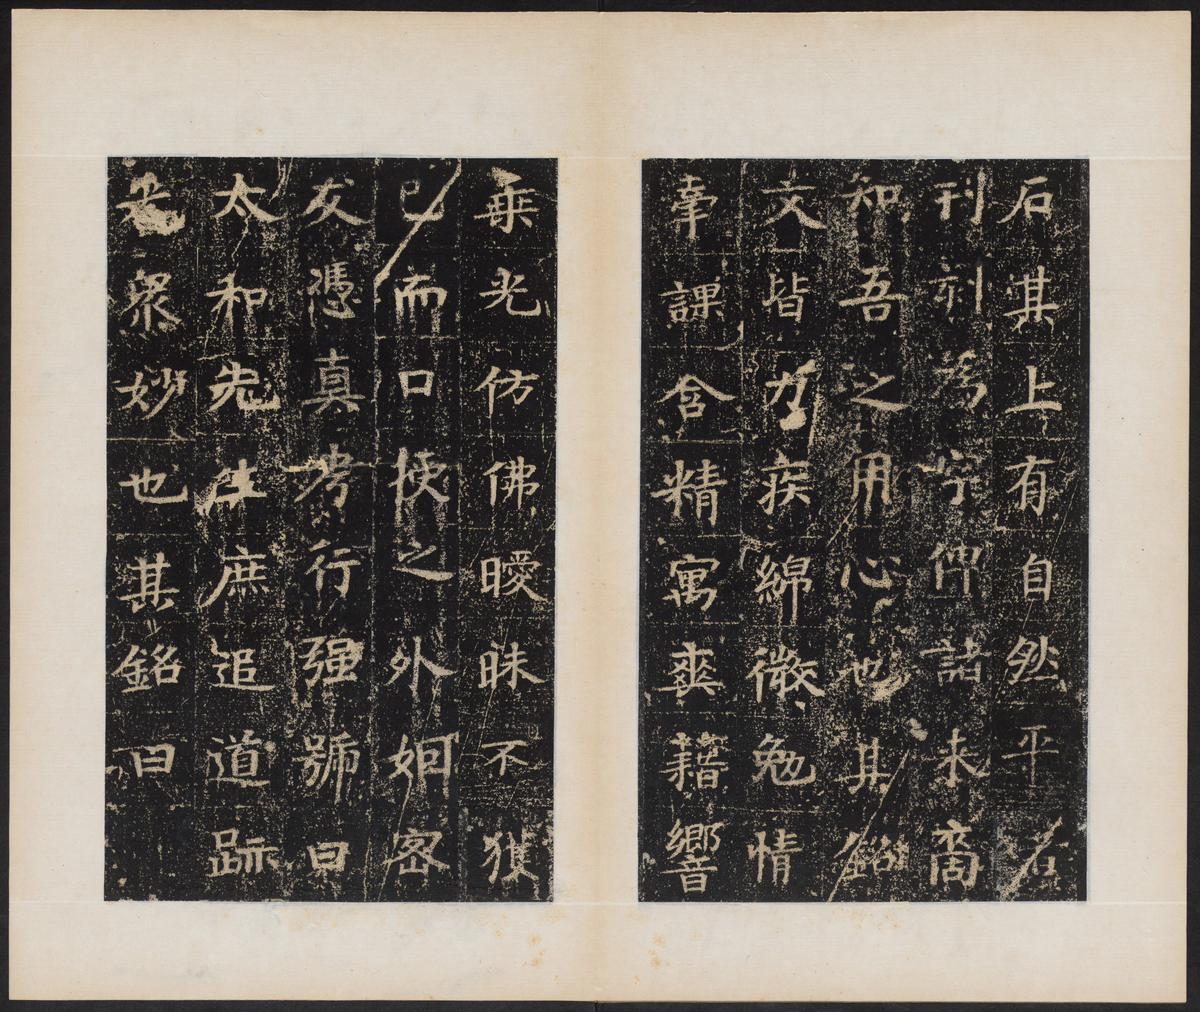 石其上有自然平石
刊刻為字伸諸来裔
知吾之用心也其銘
文皆力疾綿微勉情
牽課含精寓爽藉響
乗光仿佛曖昧不獲
已而口授之外姻密
友憑真考行强號曰
太和先生庶追道跡
光衆妙也其銘曰